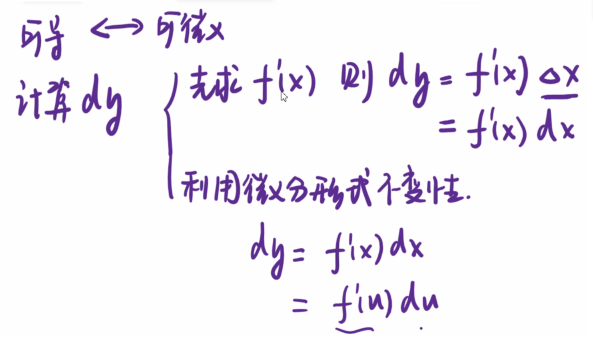 可导 ⟷ 可微
计算 dy { 先求 f'(x) 则 dy = f'(x) Δx
= f'(x) dx
利用微分形式不变性.
dy = f'(x) dx
= f'(u) du